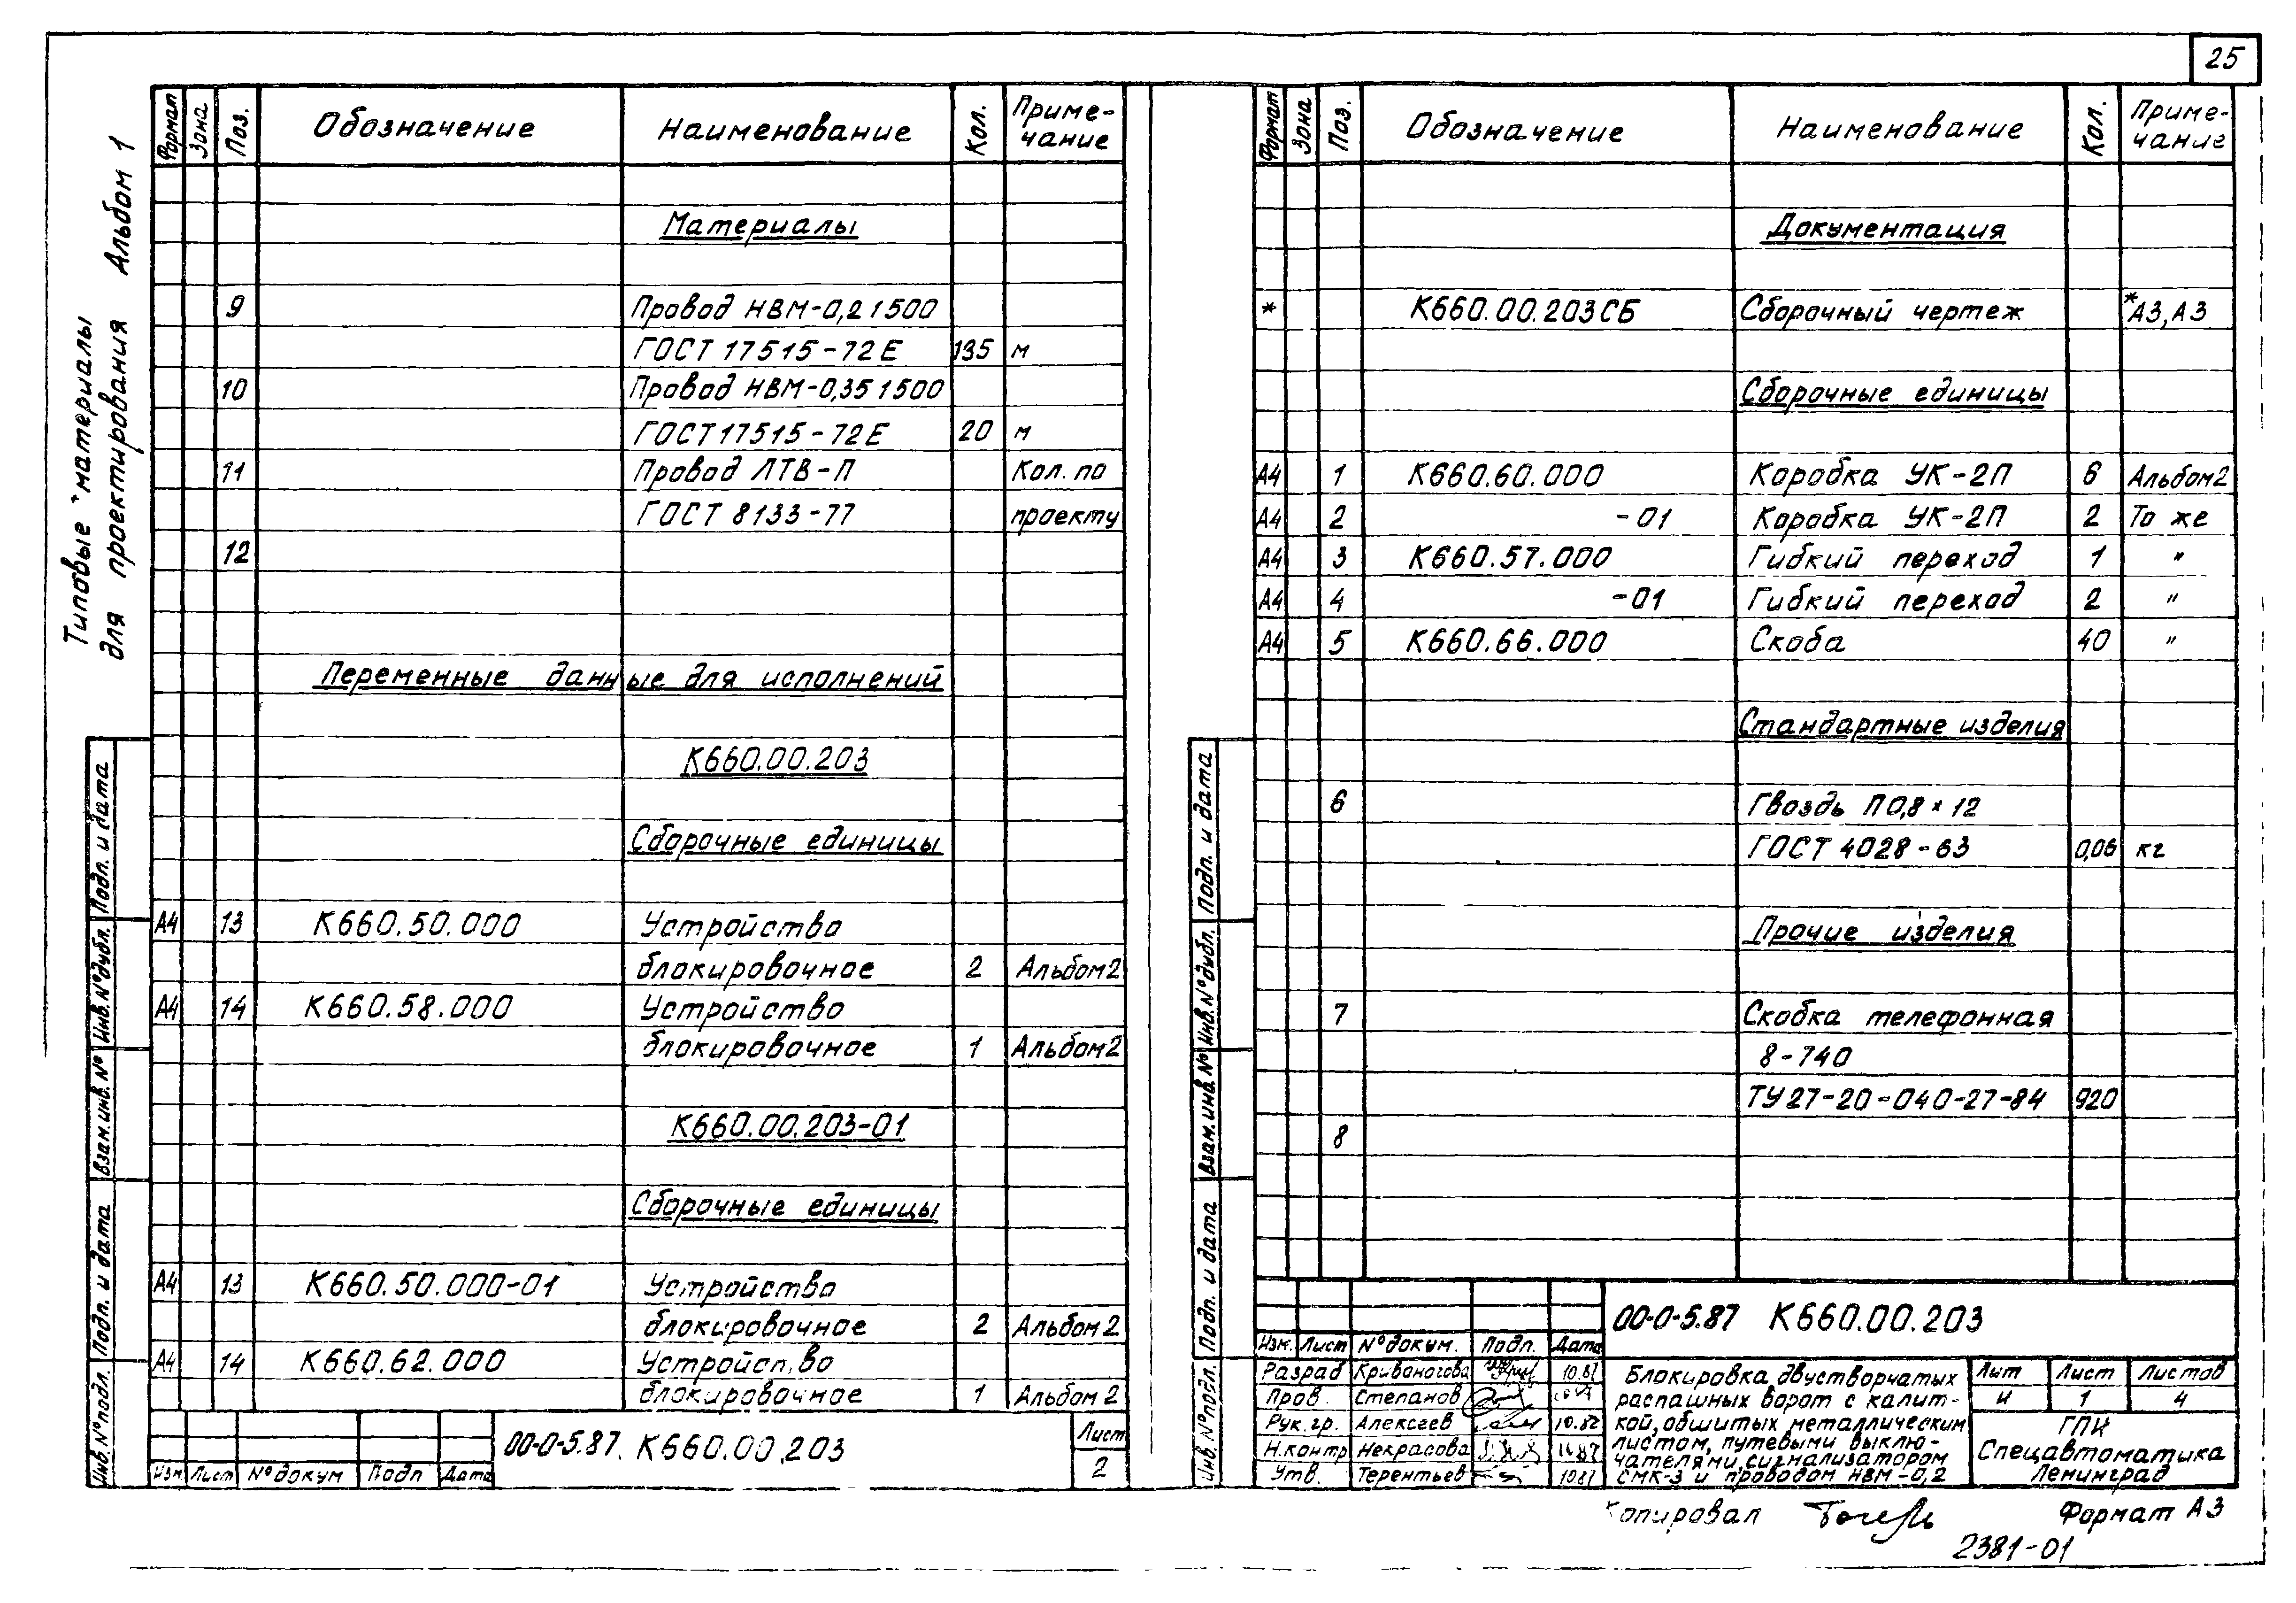 25
Типовые материалы
для проектирования Альбом 1
Формат Зона Поз. Обозначение Наименование Кол. Приме-
чание
Материалы
9 Провод НВМ-0,2 1500
ГОСТ 17515-72Е 135 м
10 Провод НВМ-0,35 1500
ГОСТ 17515-72Е 20 м
11 Провод ЛТВ-П Кол. по
ГОСТ 8133-77 проекту
12
Переменные данные для исполнений
К660.00.203
Сборочные единицы
А4 13 К660.50.000 Устройство
блокировочное 2 Альбом2
А4 14 К660.58.000 Устройство
блокировочное 1 Альбом2
К660.00.203-01
Сборочные единицы
А4 13 К660.50.000-01 Устройство
блокировочное 2 Альбом2
А4 14 К660.62.000 Устройство
блокировочное 1 Альбом2
00-0-5.87. К660.00.203
Лист
2
Изм Лист №докум Подп Дата
Инв.№подл. Подп. и дата Взам.инв.№ Инв.№дубл. Подп. и дата
Формат Зона Поз. Обозначение Наименование Кол. Приме-
чание
Документация
* К660.00.203СБ Сборочный чертеж *А3,А3
Сборочные единицы
А4 1 К660.60.000 Коробка УК-2П 6 Альбом2
А4 2 -01 Коробка УК-2П 2 То же
А4 3 К660.57.000 Гибкий переход 1 "
А4 4 -01 Гибкий переход 2 "
А4 5 К660.66.000 Скоба 40 "
Стандартные изделия
6 Гвоздь П 0,8×12
ГОСТ 4028-63 0,06 кг
Прочие изделия
7 Скобка телефонная
8-740
ТУ27-20-040-27-84 920
8
Инв.№подл. Подп. и дата Взам.инв.№ Инв.№дубл. Подп. и дата
00-0-5.87 К660.00.203
Изм. Лист №докум. Подп. Дата
Разраб Кривоногова 10.87
Пров. Степанов
Рук.гр. Алексеев
Н.контр Некрасова
Утв. Терентьев 10.87
Блокировка двустворчатых
распашных ворот с калит-
кой, обшитых металлическим
листом, путевыми выклю-
чателями, сигнализатором
СМК-3 и проводом НВМ-0,2
Лит Лист Листов
И 1 4
ГПИ
Спецавтоматика
Ленинград
Копировал Формат А3
2381-01